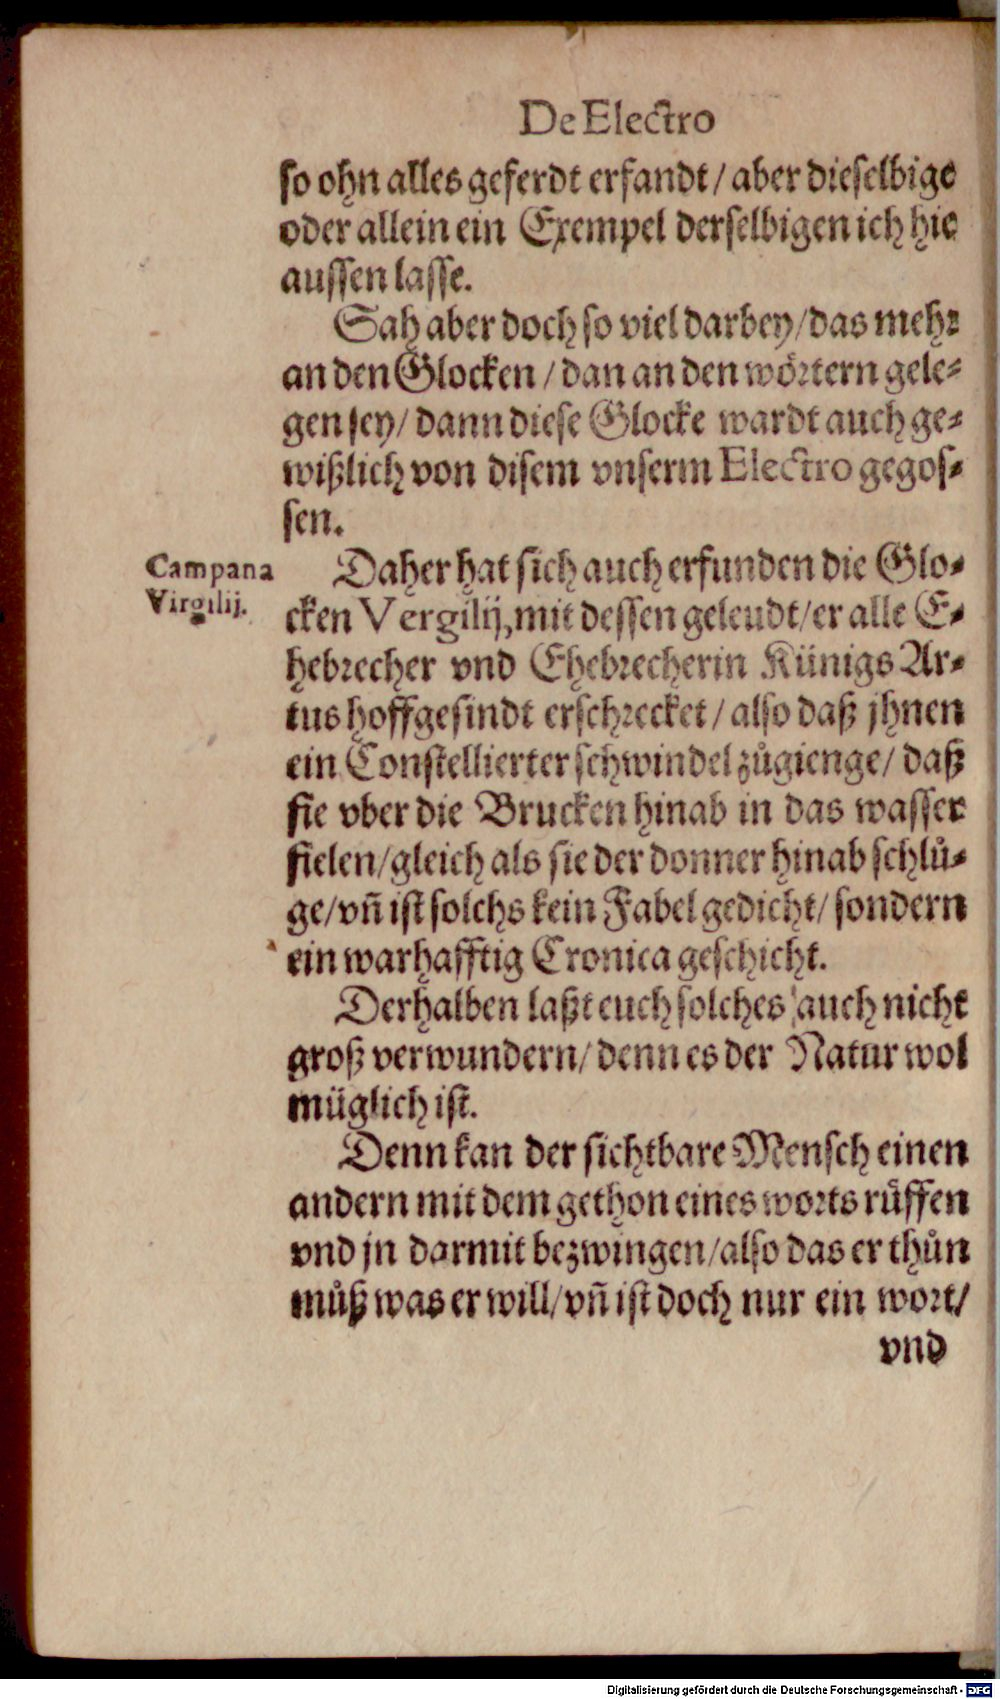 De Electro
so ohn alles geferdt erfandt / aber dieselbige
oder allein ein Exempel derselbigen ich hie
aussen lasse.
Sah aber doch so viel darbey / das mehr
an den Glocken / dan an den wörtern gele-
gen sey / dann diese Glocke wardt auch ge-
wißlich von disem vnserm Electro gegos-
sen.
Campana
Virgilij.
Daher hat sich auch erfunden die Glo-
cken Vergilij, mit dessen geleudt / er alle E-
hebrecher vnd Ehebrecherin Künigs Ar-
tus hoffgesindt erschrecket / also daß jhnen
ein Constellierter schwindel zůgienge / daß
sie vber die Brucken hinab in das wasser
fielen / gleich als sie der donner hinab schlů-
ge / vñ ist solchs kein Fabel gedicht / sondern
ein warhafftig Cronica geschicht.
Derhalben laßt euch solches auch nicht
groß verwundern / denn es der Natur wol
müglich ist.
Denn kan der sichtbare Mensch einen
andern mit dem gethon eines worts rüffen
vnd jn darmit bezwingen / also das er thůn
můß was er will / vñ ist doch nur ein wort /
vnd
Digitalisierung gefördert durch die Deutsche Forschungsgemeinschaft - DFG